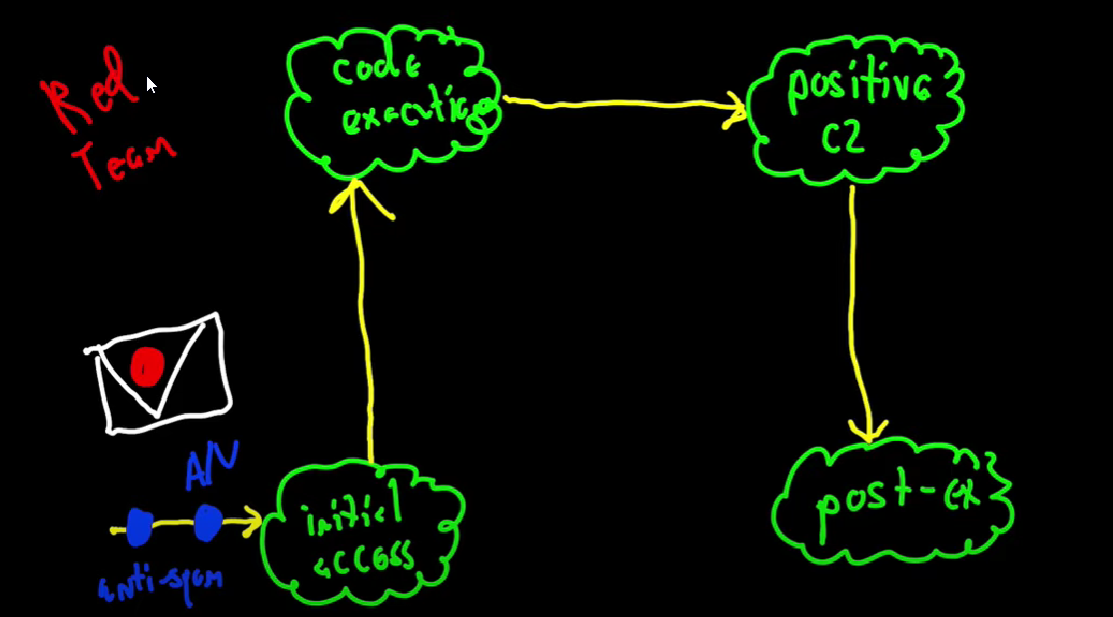 Red
Team
code
execution
positive
C2
A/V
anti-spam
initial
access
post-ex